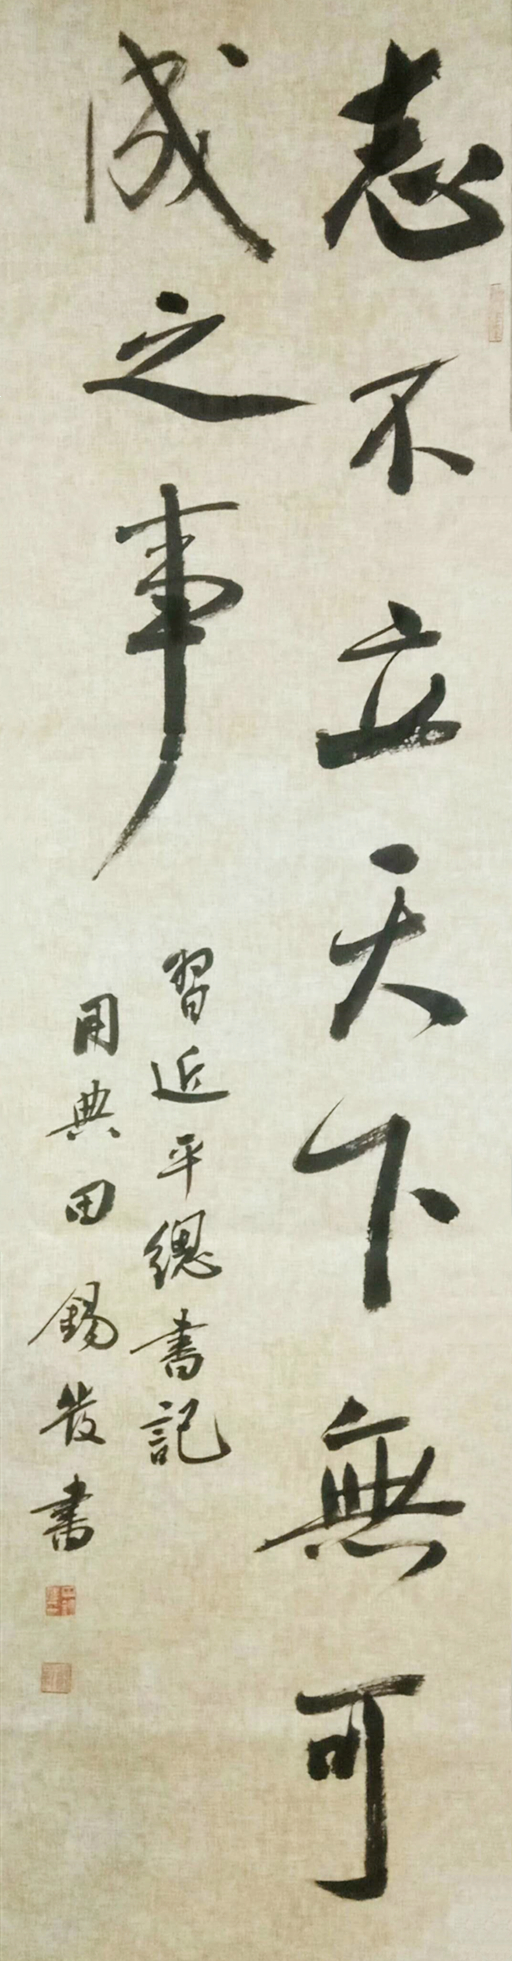 志不立天下無可
成之事
習近平總書記
用典田錫發書